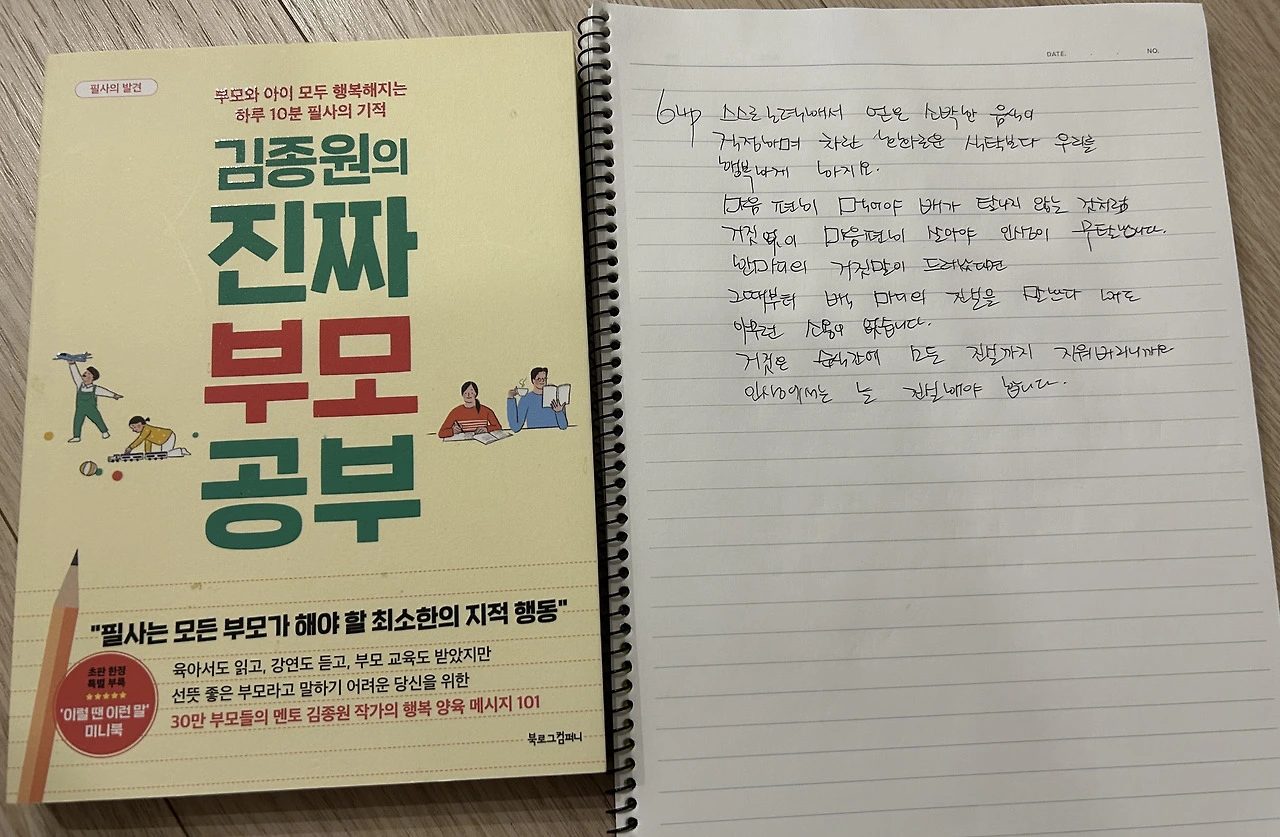 필사의 발견
부모와 아이 모두 행복해지는
하루 10분 필사의 기적
김종원의
진짜
부모
공부
"필사는 모든 부모가 해야 할 최소한의 지적 행동"
육아서도 읽고, 강연도 듣고, 부모 교육도 받았지만
선뜻 좋은 부모라고 말하기 어려운 당신을 위한
30만 부모들의 멘토 김종원 작가의 행복 양육 메시지 101
초판 한정
특별 부록
★★★★★
'이럴 땐 이런 말'
미니북
북로그컴퍼니
DATE. . . NO.
스스로 노력해서 얻은 소박한 음식이
걱정하며 차린 화려한 식탁보다 우리를
행복하게 하지요.
마음 편히 먹어야 배가 탈나지 않는 것처럼
거짓 없이 마음편히 살아야 인생이 무탈합니다.
한마디의 거짓말이 드러났다면
그때부터 백 마디의 진실을 말한다 해도
아무런 소용이 없습니다.
거짓은 순식간에 모든 진실까지 지워버리니까요
인생에서는 늘 진실해야 합니다.